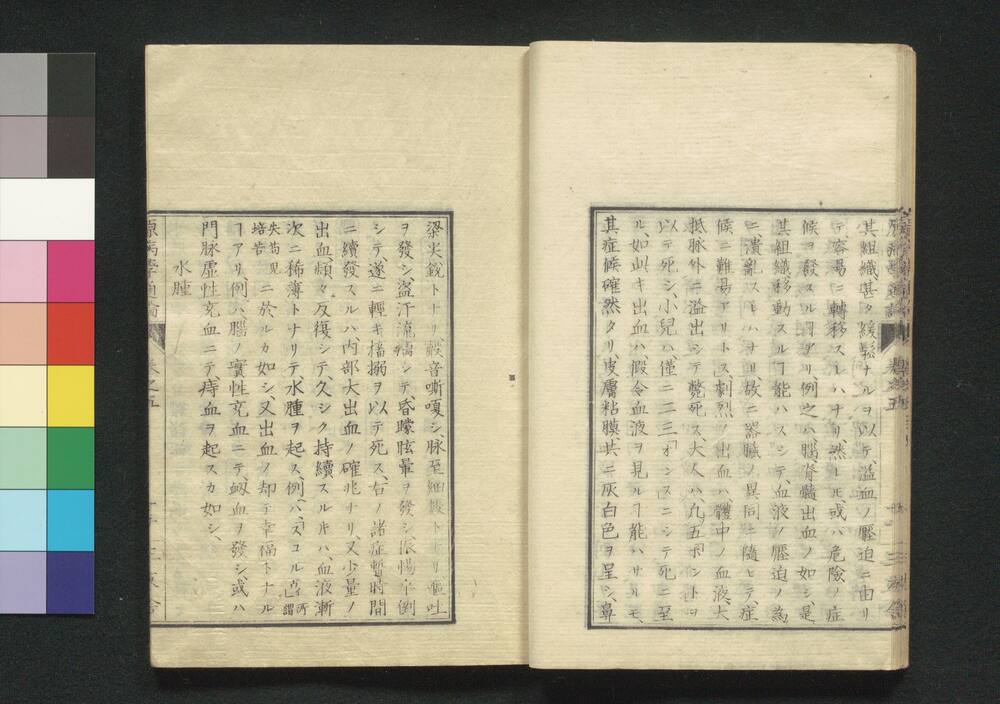 其組織、甚タ緩鬆ナルヲ以テ溢血ノ壓迫ニ由リ
テ容易ニ轉移スレハナリ然レ𪜈或ハ危險ノ症
候ヲ發スルヿアリ例之ハ腦脊髓出血ノ如シ是
其組織移動スルヿ能ハスシテ、血液ノ壓迫ノ為
ニ潰亂スレハナリ故ニ器臓ノ異同ニ隨ヒテ、症
候ニ難易アリトス、劇烈ノ出血ハ、體中ノ血液、大
抵脉外ニ溢出シテ斃死ス、大人ハ、九五ポンドヲ
以テ死シ、小兒ハ、僅ニ二三「オンス」ニシテ死ニ至
ル、如此キ出血ハ、假令血液ヲ見ルヿ能ハサルモ、
其症候確然タリ、皮膚粘膜、共ニ灰白色ヲ呈シ、鼻
梁尖鋭トナリ聲音嘶嗄シ、脉至細數トナリ嘔吐
ヲ發シ、盗汗流漓シテ、昏矇眩暈ヲ發シ、
シテ遂ニ輕キ搐搦ヲ以テ死ス、右ノ諸症暫時間
ニ續發スルハ、内部大出血ノ確兆ナリ、又少量ノ
出血、頻々反復シテ久シク持續スルキハ、血液漸
次ニ稀薄トナリテ水腫ヲ起ス、例ハ「スコルビ
所謂
失苟兒
培苦
ニ於ルカ如シ、又出血ノ却テ幸福トナル
ヿアリ例ハ、腦ノ實性充血ニテ、衂血ヲ發シ、或ハ
門脉虚性充血ニテ、痔血ヲ起スカ如シ、
水腫
原病學通論
卷之五
三友舎